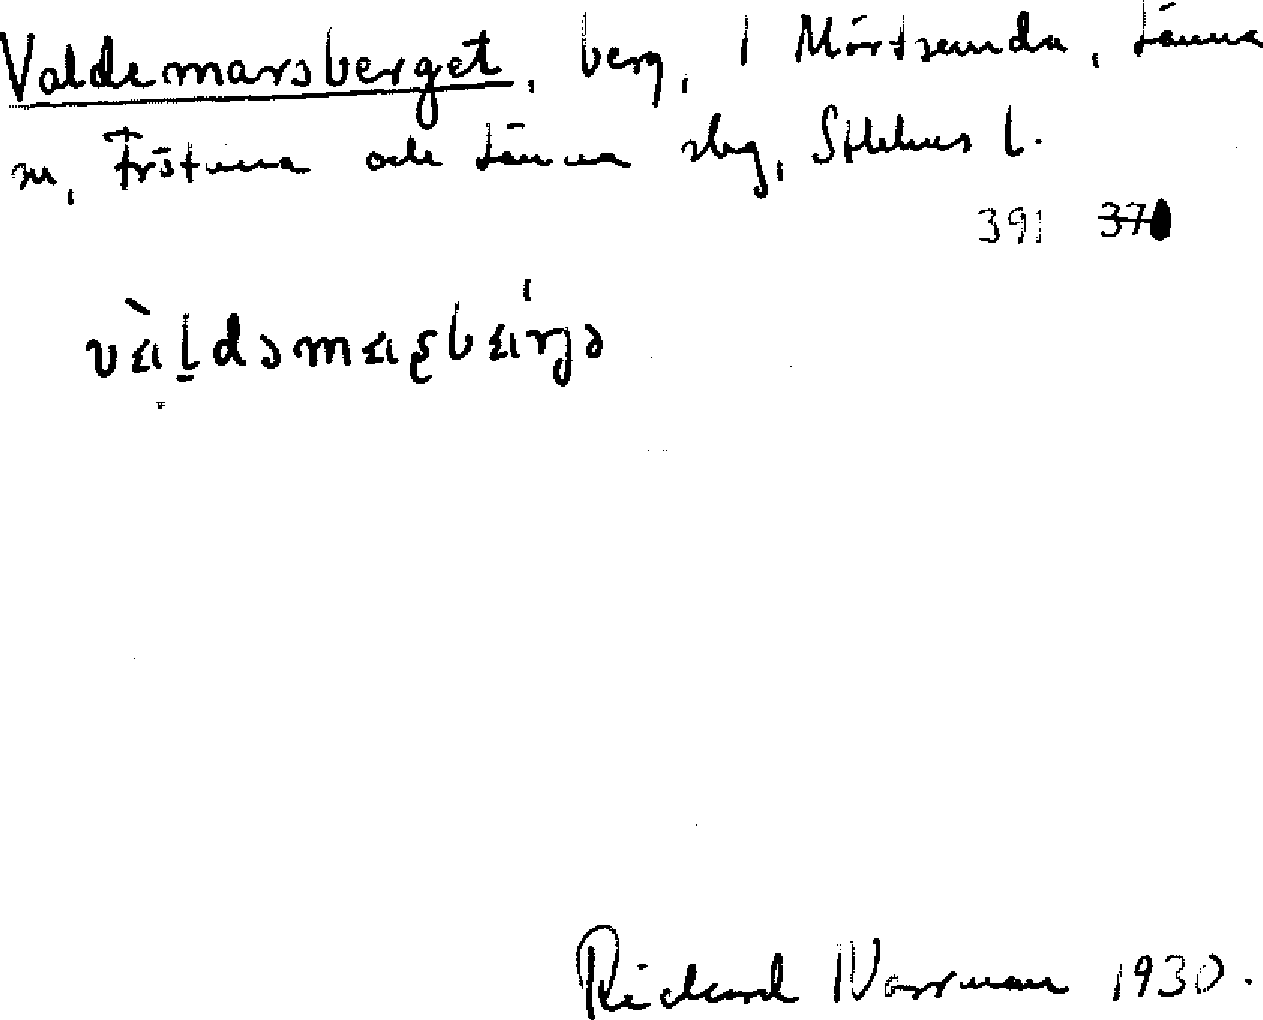 Valdemarsberget, berg, i Mörtsunda, Länna
sn, Frötuna och Länna slg, Sthlms l.
391 370
vàldəmaʂbárjə
Rickard Norrman 1930.